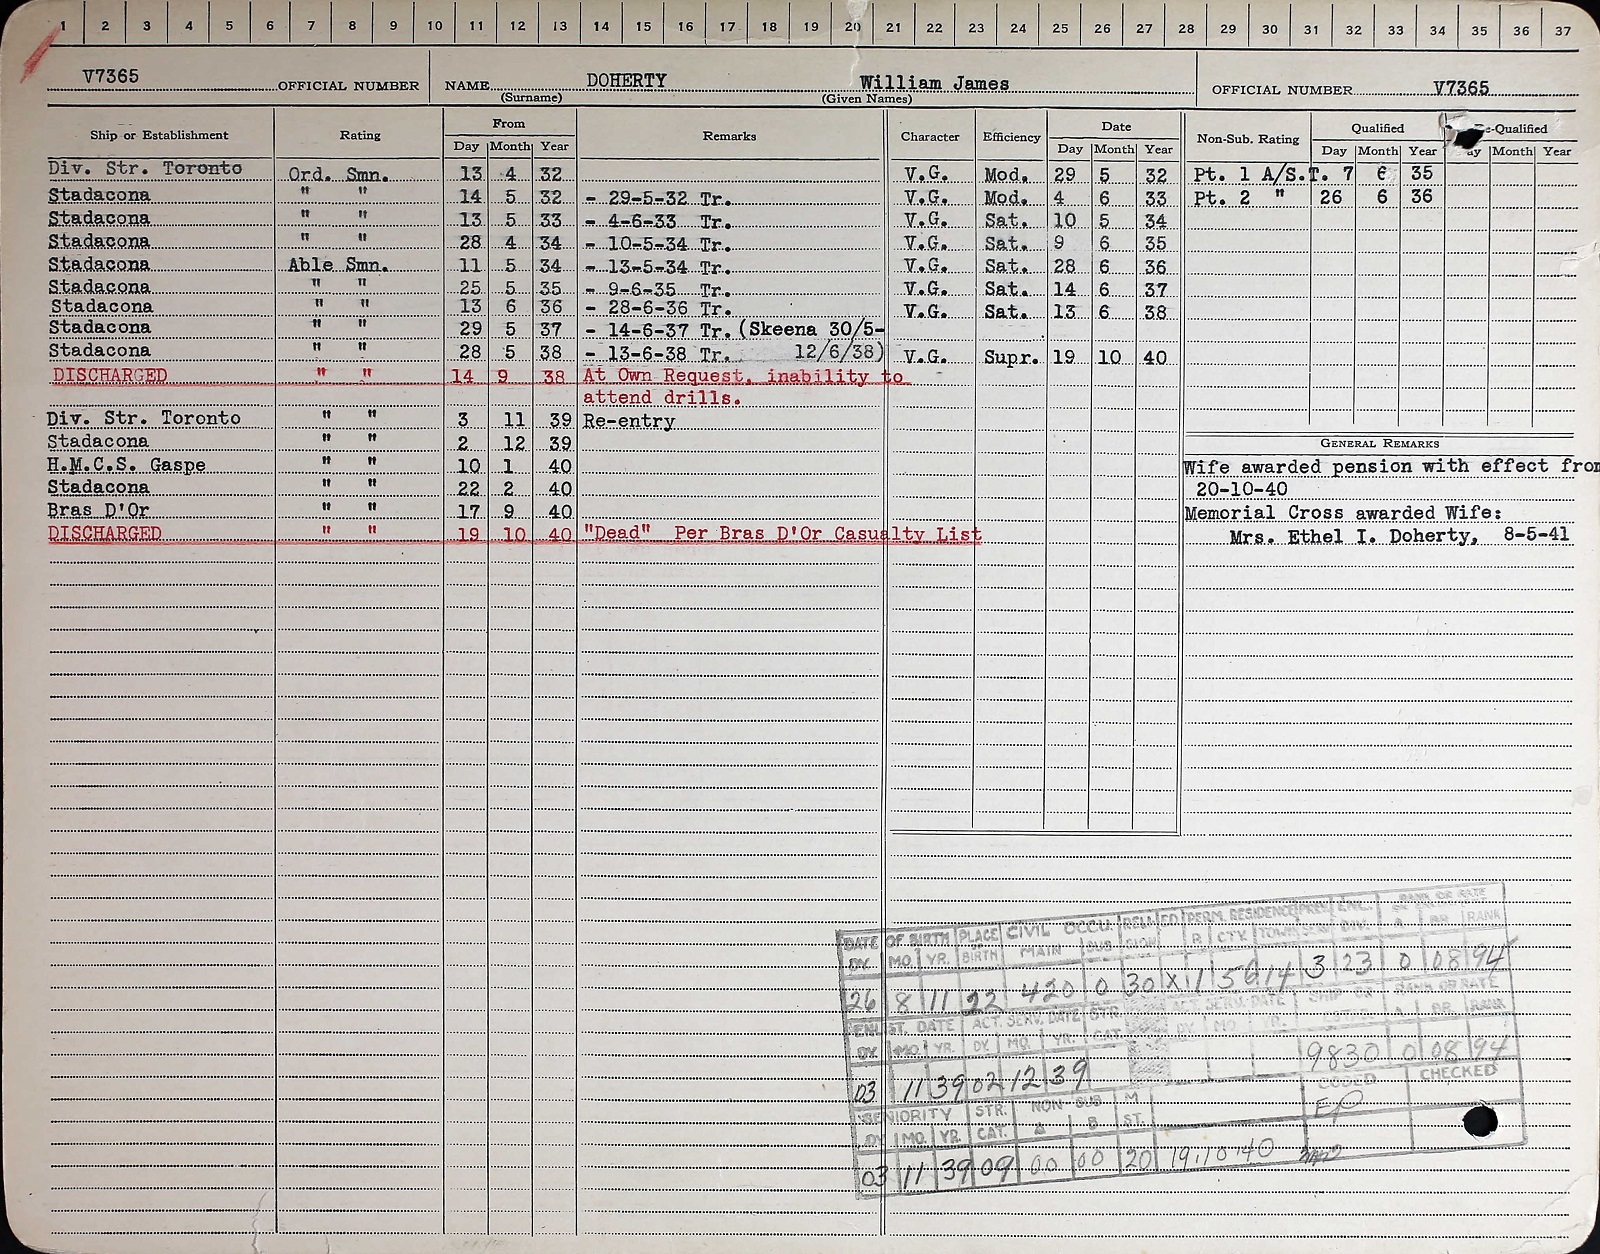 1 2 3 4 5 6 7 8 9 10 11 12 13 14 15 16 17 18 19 20 21 22 23 24 25 26 27 28 29 30 31 32 33 34 35 36 37
V7365 OFFICIAL NUMBER NAME DOHERTY William James OFFICIAL NUMBER V7365
(Surname) (Given Names)
Ship or Establishment Rating From Remarks Character Efficiency Date Non-Sub. Rating Qualified e-Qualified
Day Month Year Day Month Year Day Month Year ay Month Year
Div. Str. Toronto Ord. Smn. 13 4 32 V.G. Mod. 29 5 32 Pt. 1 A/S.T. 7 6 35
Stadacona " " 14 5 32 - 29-5-32 Tr. V.G. Mod. 4 6 33 Pt. 2 " 26 6 36
Stadacona " " 13 5 33 - 4-6-33 Tr. V.G. Sat. 10 5 34
Stadacona " " 28 4 34 - 10-5-34 Tr. V.G. Sat. 9 6 35
Stadacona Able Smn. 11 5 34 - 13-5-34 Tr. V.G. Sat. 28 6 36
Stadacona " " 25 5 35 - 9-6-35 Tr. V.G. Sat. 14 6 37
Stadacona " " 13 6 36 - 28-6-36 Tr. V.G. Sat. 13 6 38
Stadacona " " 29 5 37 - 14-6-37 Tr. (Skeena 30/5-
Stadacona " " 28 5 38 - 13-6-38 Tr. 12/6/38) V.G. Supr. 19 10 40
DISCHARGED " " 14 9 38 At Own Request, inability to
attend drills.
Div. Str. Toronto " " 3 11 39 Re-entry
Stadacona " " 2 12 39
GENERAL REMARKS
H.M.C.S. Gaspe " " 10 1 40 Wife awarded pension with effect from
Stadacona " " 22 2 40 20-10-40
Bras D'Or " " 17 9 40 Memorial Cross awarded Wife:
DISCHARGED " " 19 10 40 "Dead" Per Bras D'Or Casualty List Mrs. Ethel I. Doherty, 8-5-41
DATE OF BIRTH PLACE CIVIL OCCU. PERM. RESIDENCE ENL. RANK OR RATE
DY. MO. YR. BIRTH MAIN SUB B CTY. TOWN DIV. RANK
26 8 11 22 420 0 30 X11 5614 3 23 0 08 94
ENL ST. DATE ACT. SERV. DATE STR. ACT. SERV. DATE SHIP OR RANK OR RATE
DY. MO. YR. DY. MO. YR. CAT. DY. MO. BR. RANK
03 11 39 02 12 39 9830 0 08 94
SENIORITY STR. NON-SUB M CODED CHECKED
DY MO. YR. CAT. A B ST.
03 11 39 09 00 00 20 19.10.40